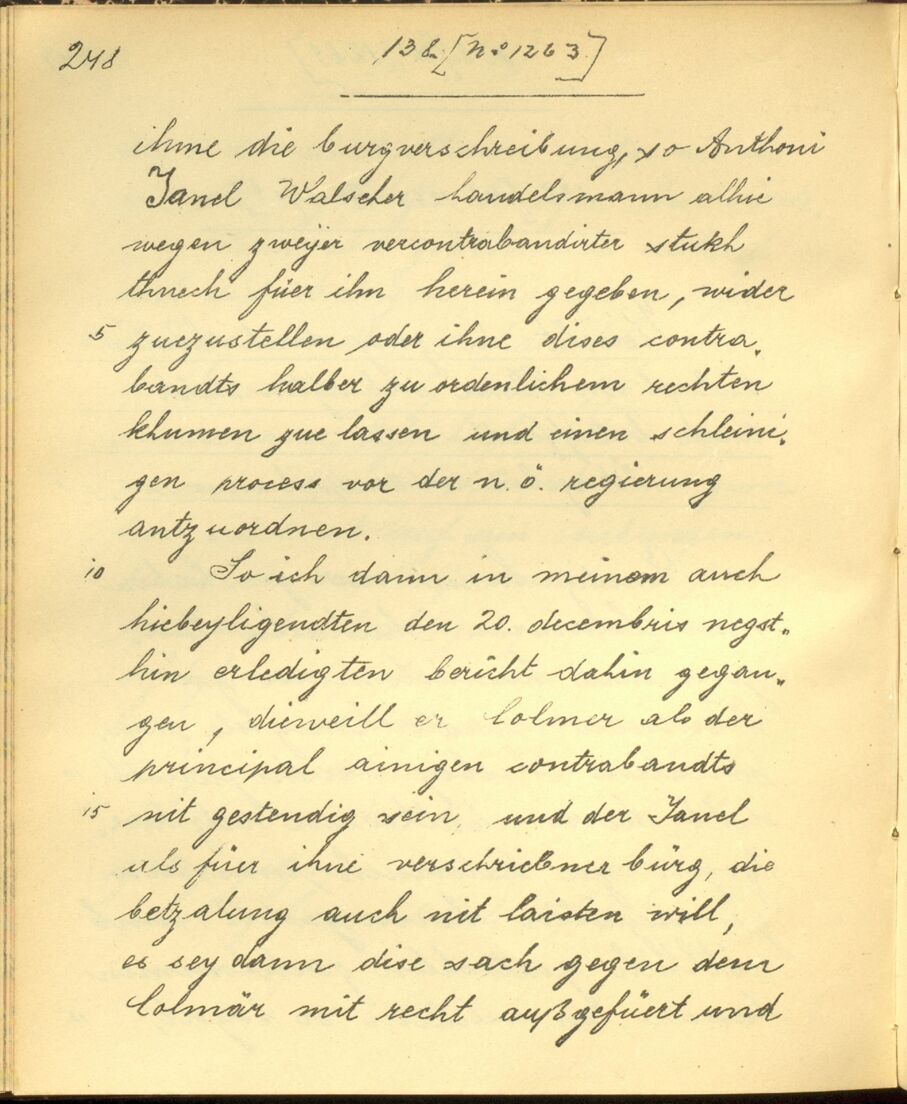 248
138. [No 1263]
ihme die burgverschreibung, so Anthoni
Janel Walscher handelsmann alhie
wegen zweyer vercontrabandirter stukh
thuech füer ihn herein gegeben, wider
5 zuezustellen oder ihne dises contra„
bandts halber zu ordenlichem rechten
khumen zue lassen und einen schleini„
gen process vor der n. ö. regierung
antzuordnen.
10 So ich dann in meinem auch
hiebeyligendten den 20. decembris negst„
hin erledigten bericht dahin gegan„
gen, dieweill er Colmer als der
principal ainigen contrabandts
15 nit gestendig sein, und der Janel
als füer ihne verschriebner bürg, die
betzalung auch nit laisten will,
es sey dann dise sach gegen dem
Colmär mit recht außgefüert und